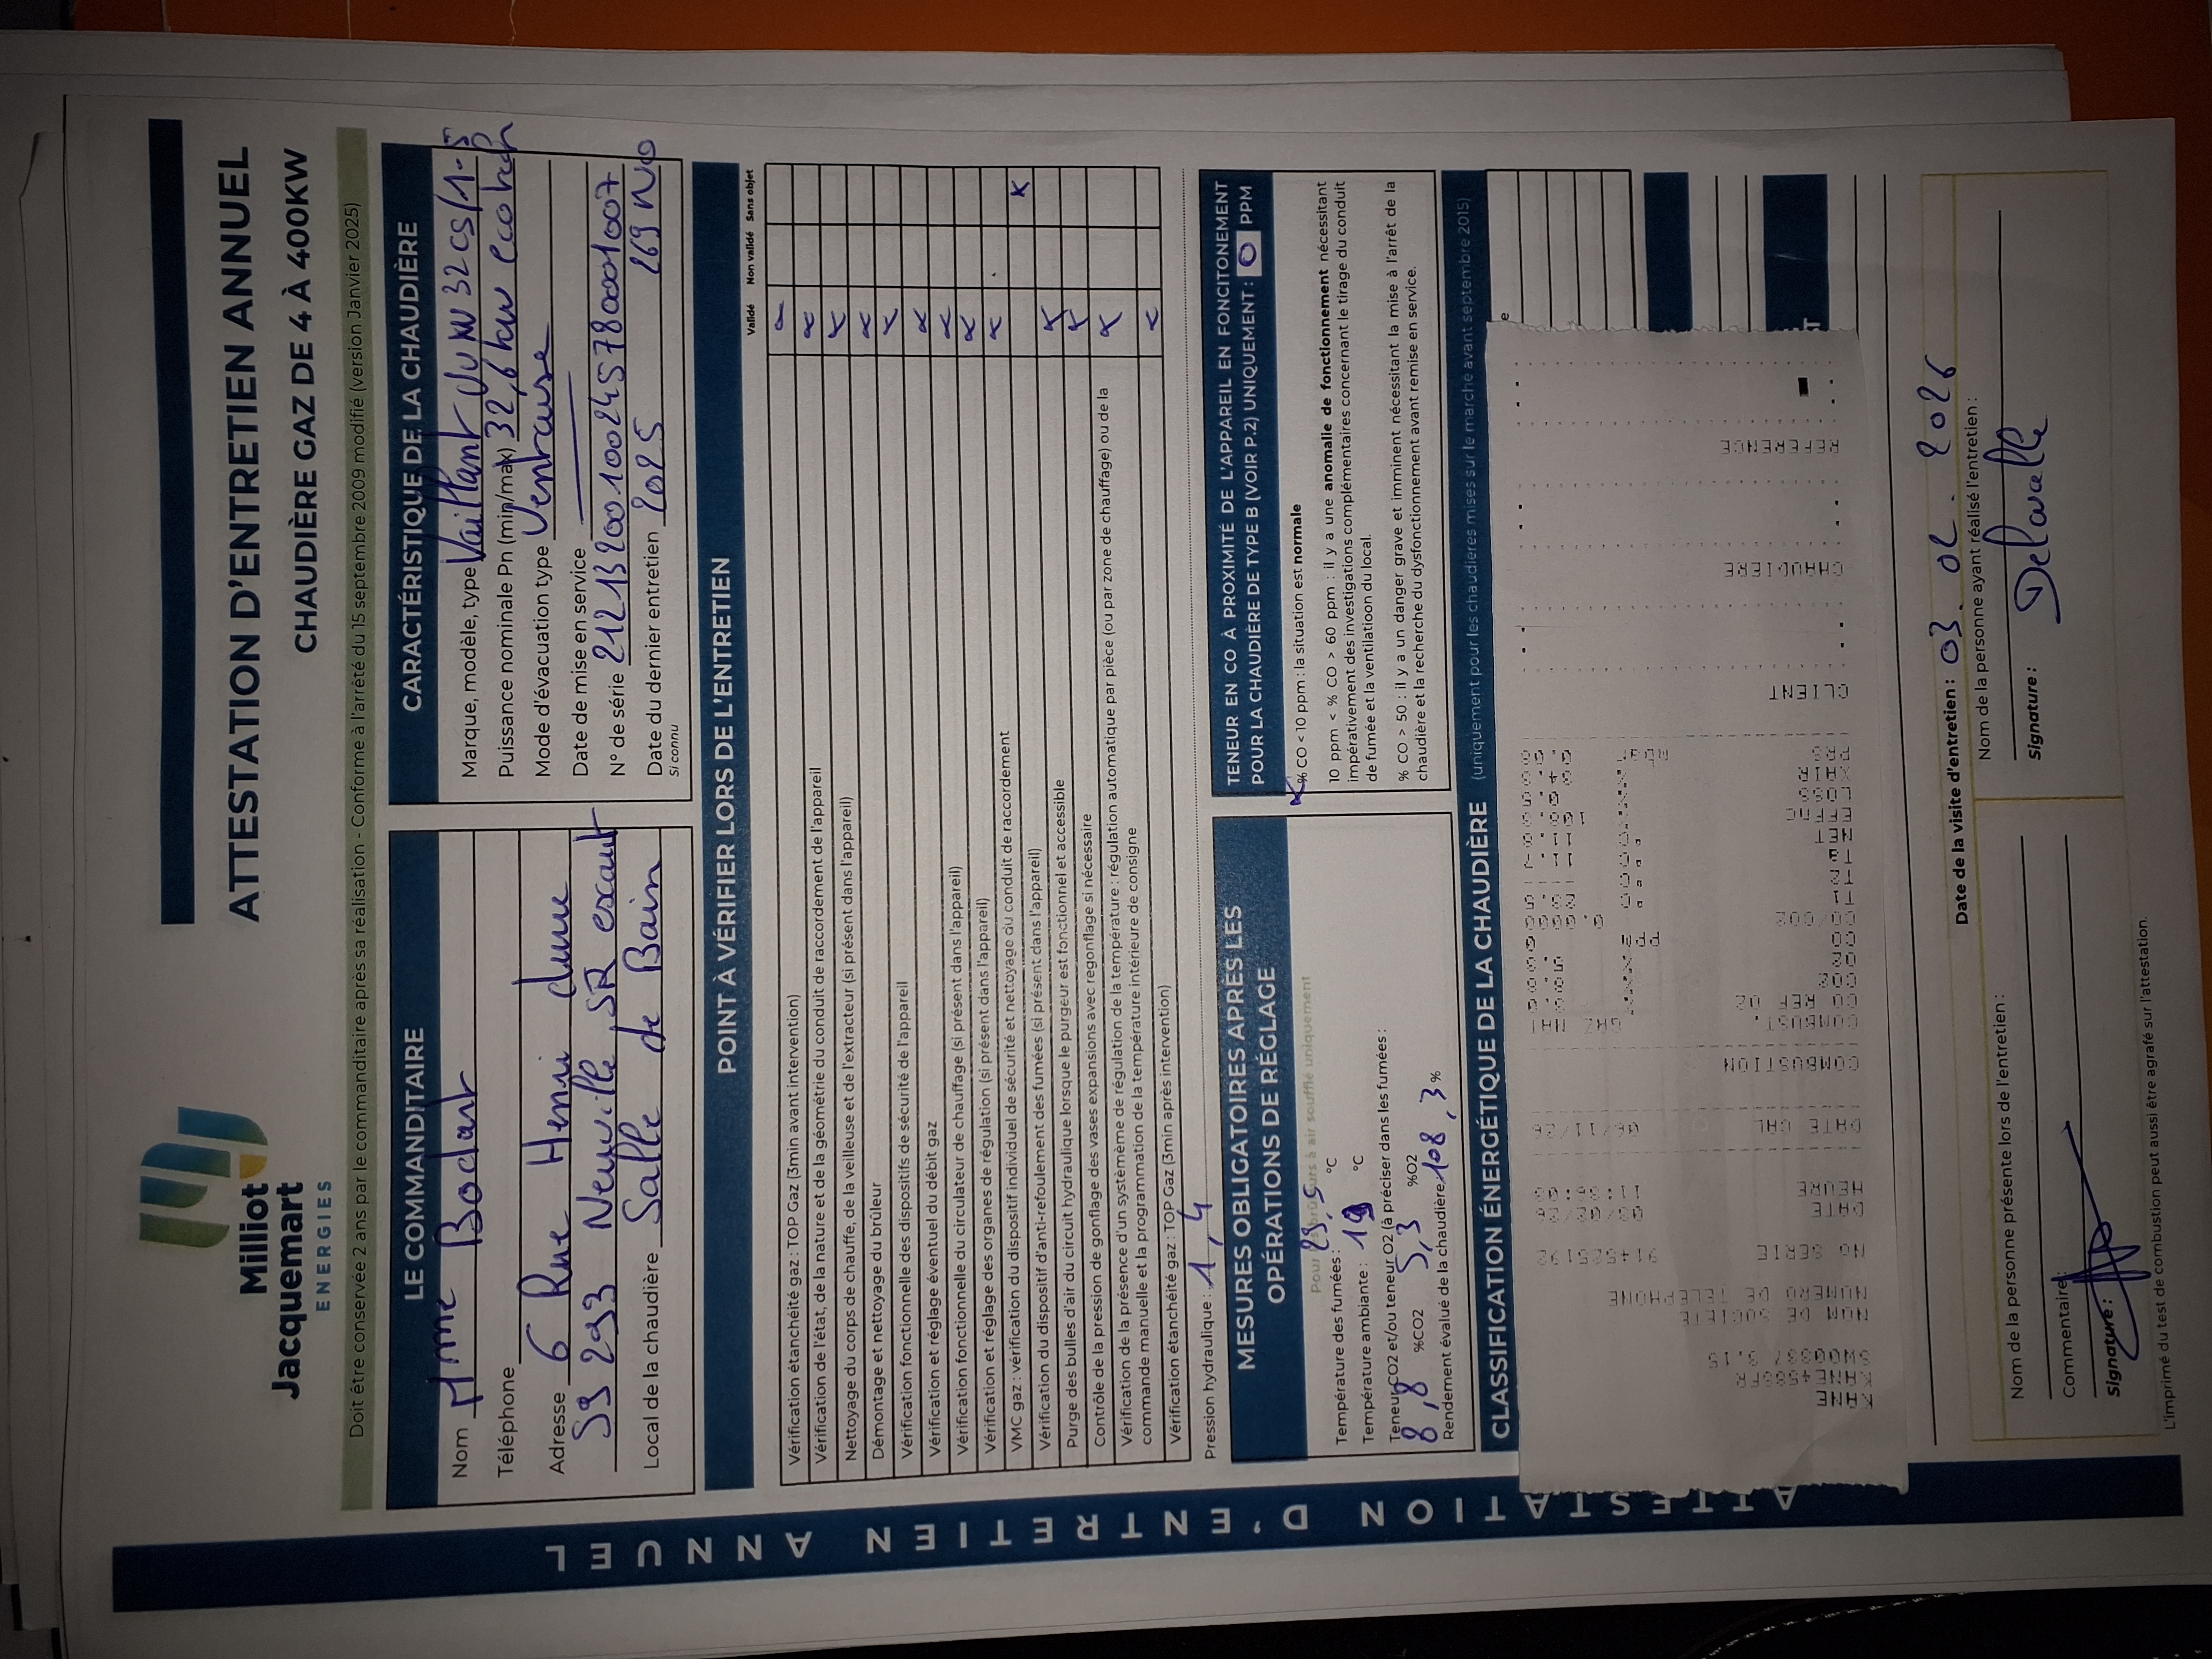 Milliot
Jacquemart
ENERGIES
ATTESTATION D'ENTRETIEN ANNUEL
CHAUDIÈRE GAZ DE 4 À 400KW
Doit être conservée 2 ans par le commanditaire après sa réalisation - Conforme à l'arrêté du 15 septembre 2009 modifié (version Janvier 2025)
LE COMMANDITAIRE
Nom Mme Bodart
Téléphone
Adresse 6 Rue Henri dune
59293 Neuville SR escaut
Local de la chaudière Salle de Bain
CARACTÉRISTIQUE DE LA CHAUDIÈRE
Marque, modèle, type Vaillant VUXW 32 CS/1-5
Puissance nominale Pn (min/max) 32,6 kaw ecotech
Mode d'évacuation type Ventouse
Date de mise en service
N° de série 21213200100245780001007
Date du dernier entretien 2025 269 NO
Si connu
POINT À VÉRIFIER LORS DE L'ENTRETIEN
Validé Non validé Sans objet
Vérification étanchéité gaz : TOP Gaz (3min avant intervention)
Vérification de l'état, de la nature et de la géométrie du conduit de raccordement de l'appareil
Nettoyage du corps de chauffe, de la veilleuse et de l'extracteur (si présent dans l'appareil)
Démontage et nettoyage du brûleur
Vérification fonctionnelle des dispositifs de sécurité de l'appareil
Vérification et réglage éventuel du débit gaz
Vérification fonctionnelle du circulateur de chauffage (si présent dans l'appareil)
Vérification et réglage des organes de régulation (si présent dans l'appareil)
VMC gaz : vérification du dispositif individuel de sécurité et nettoyage du conduit de raccordement
Vérification du dispositif d'anti-refoulement des fumées (si présent dans l'appareil)
Purge des bulles d'air du circuit hydraulique lorsque le purgeur est fonctionnel et accessible
Contrôle de la pression de gonflage des vases expansions avec regonflage si nécessaire
Vérification de la présence d'un systèmème de régulation de la température : régulation automatique par pièce (ou par zone de chauffage) ou de la
commande manuelle et la programmation de la température intérieure de consigne
Vérification étanchéité gaz : TOP Gaz (3min après intervention)
Pression hydraulique : 1,4
MESURES OBLIGATOIRES APRÈS LES
OPÉRATIONS DE RÉGLAGE
Pour les brûleurs à air soufflé uniquement
Température des fumées : °C
Température ambiante : 19 °C
Teneur CO2 et/ou teneur O2 (à préciser dans les fumées) :
8,8 %CO2 5,3 %O2
Rendement évalué de la chaudière 108,3 %
TENEUR EN CO À PROXIMITÉ DE L'APPAREIL EN FONCITONEMENT
POUR LA CHAUDIÈRE DE TYPE B (VOIR P.2) UNIQUEMENT : 0 PPM
% CO < 10 ppm : la situation est normale
10 ppm < % CO > 60 ppm : il y a une anomalie de fonctionnement nécessitant
impérativement des investigations complémentaires concernant le tirage du conduit
de fumée et la ventilation du local.
% CO > 50 : il y a un danger grave et imminent nécessitant la mise à l'arrêt de la
chaudière et la recherche du dysfonctionnement avant remise en service.
CLASSIFICATION ÉNERGÉTIQUE DE LA CHAUDIÈRE (uniquement pour les chaudières mises sur le marché avant septembre 2015)
KANE
KANE458SFR
NOM DE SOCIETE
NUMERO DE TELEPHONE
NO SERIE
DATE
HEURE
DATE CAL
COMBUSTION
COMBUST.
CO2
CO
CO/CO2
NET
LOSS
XAIR
PRS
CLIENT
CHAUDIERE
REFERENCE
Date de la visite d'entretien : 03.02.2026
Nom de la personne présente lors de l'entretien :
Commentaire :
Signature :
Nom de la personne ayant réalisé l'entretien :
Delavalle
Signature :
L'imprimé du test de combustion peut aussi être agrafé sur l'attestation.
ATTESTATION D'ENTRETIEN ANNUEL